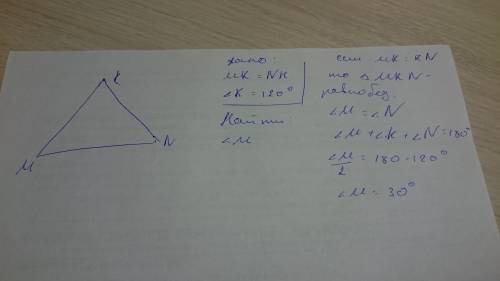 K
M
N
Дано:
MK = NK
∠K = 120°
Найти:
∠M
если MK = KN
то △MKN -
равнобед.
∠M = ∠N
∠M + ∠K + ∠N = 180°
∠M/2 = 180 - 120°
∠M = 30°